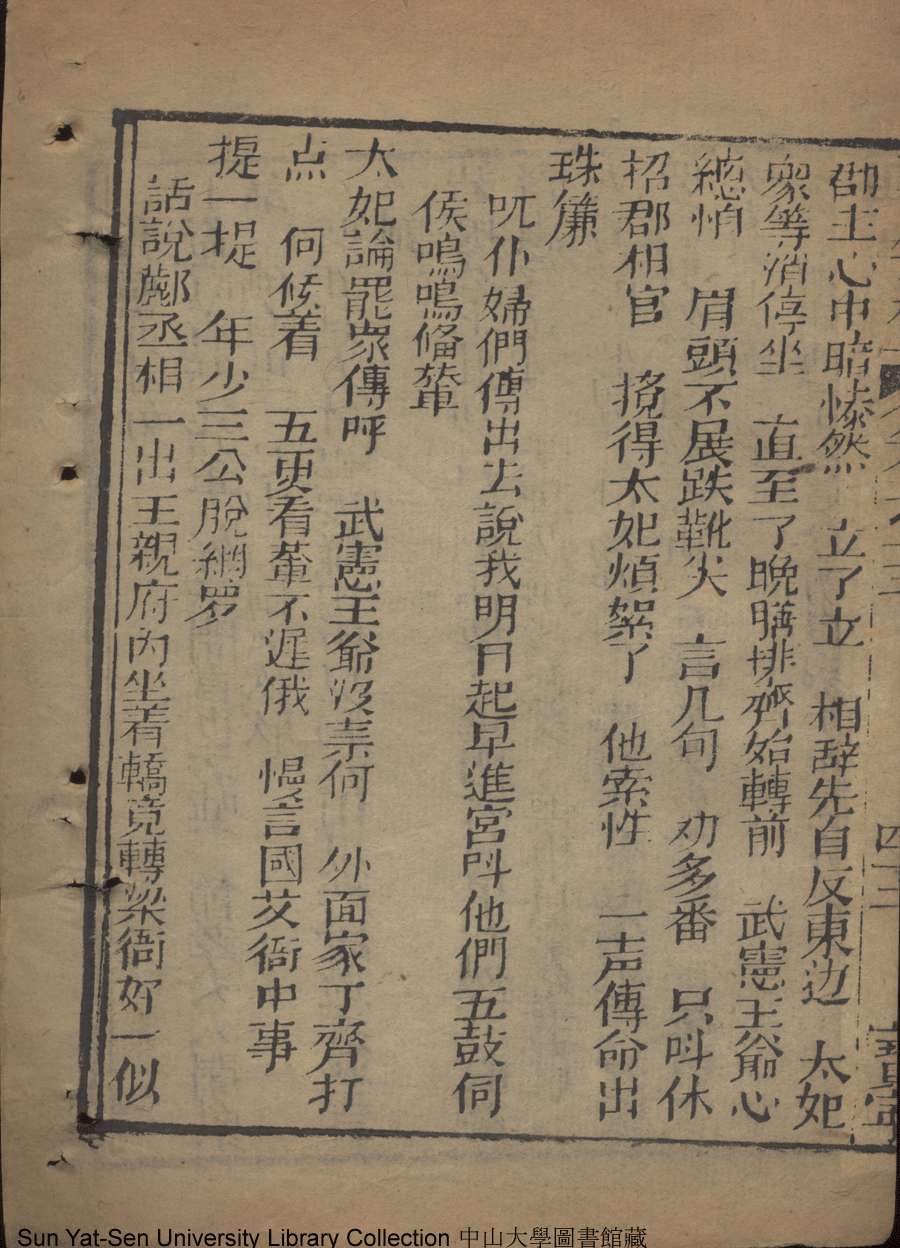 郡主心中暗悽然　立了立　相辞先自反東边　太妃
衆等消停坐　直至了晚膳排齊始轉前　武憲王爺心
総怕　肩頭不展跌靴尖　言几句　劝多番　只呌休
招郡相官　搅得太妃煩絮了　他索性　一声傳命出
珠簾
吰仆婦們傳出去說我明日起早進宮呌他們五鼓伺
侯鳴鳴俻輦
太妃論罷衆傳呼　武憲王爺没柰何　外面家丁齊打
点　伺候着　五更看輦不遅俄　慢言國丈衙中事
提一提　年少三公脫網罗
話說酈丞相一出王親府内坐着轎竟轉梁衙好一似
四十二
Sun Yat-Sen University Library Collection 中山大學圖書館藏